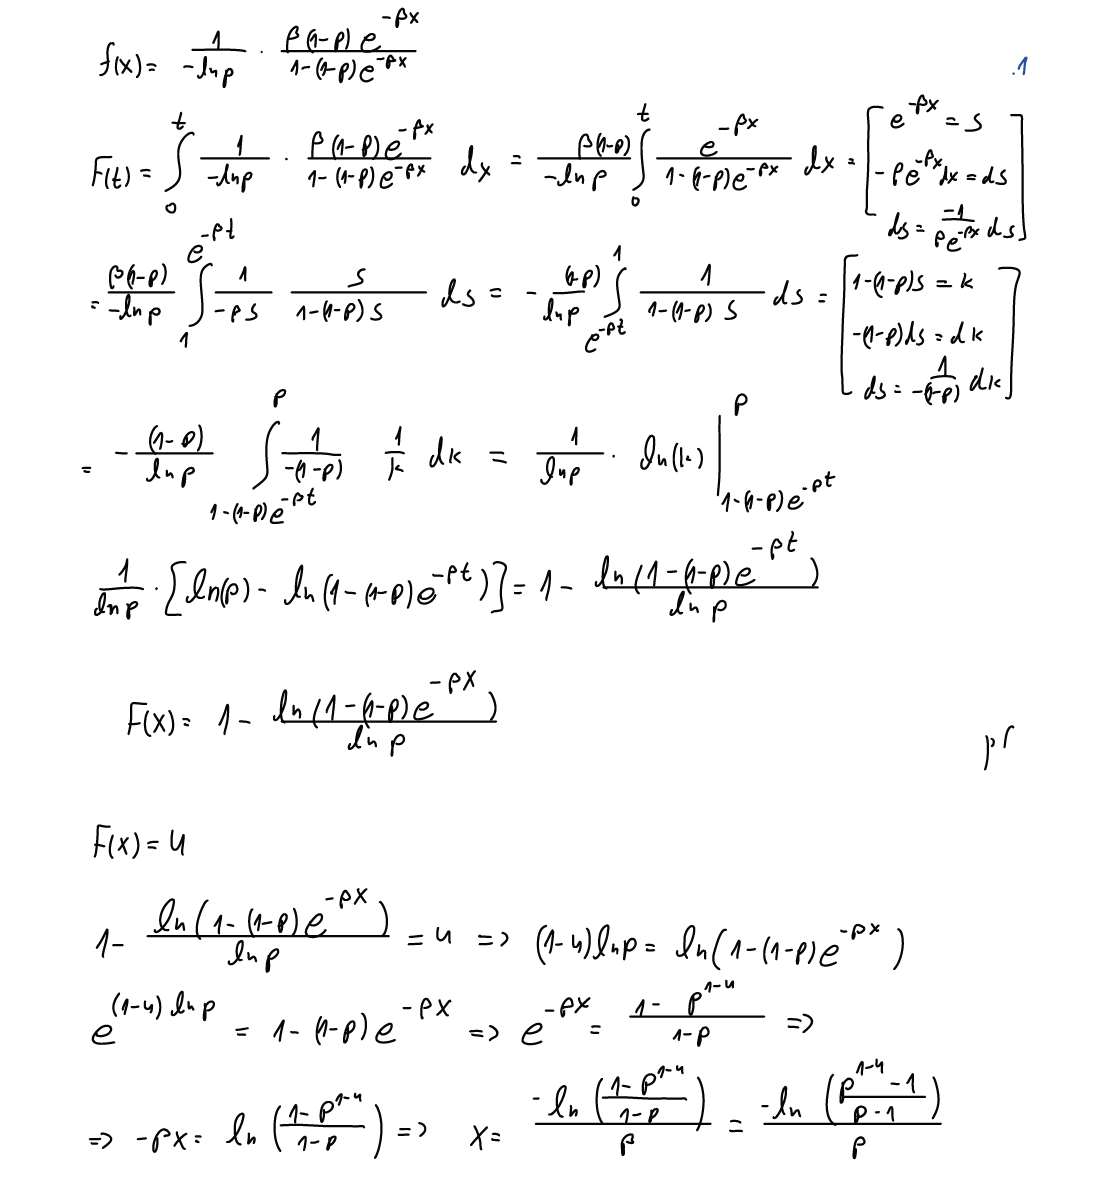 f(x) = \frac{1}{-\ln p} \cdot \frac{β(1-p) e^{-βx}}{1-(1-p)e^{-βx}}
.1
F(t) = \int_0^t \frac{1}{-\ln p} \cdot \frac{β(1-p)e^{-βx}}{1-(1-p)e^{-βx}} dx = \frac{β(1-p)}{-\ln p} \int_0^t \frac{e^{-βx}}{1-(1-p)e^{-βx}} dx = [ e^{-βx} = s
-βe^{-βx}dx = ds
ds = \frac{-1}{βe^{-βx}} ds ]
= \frac{β(1-p)}{-\ln p} \int_1^{e^{-βt}} \frac{1}{-βs} \frac{s}{1-(1-p)s} ds = -\frac{(1-p)}{\ln p} \int_{e^{-βt}}^1 \frac{1}{1-(1-p)s} ds = [ 1-(1-p)s = k
-(1-p)ds = dk
ds = \frac{1}{-(1-p)} dk ]
= -\frac{(1-p)}{\ln p} \int_{1-(1-p)e^{-βt}}^p \frac{1}{-(1-p)} \frac{1}{k} dk = \frac{1}{\ln p} \cdot \ln(k) |_{1-(1-p)e^{-βt}}^p
\frac{1}{\ln p} \cdot [\ln(p) - \ln(1-(1-p)e^{-βt})] = 1 - \frac{\ln(1-(1-p)e^{-βt})}{\ln p}
F(x) = 1 - \frac{\ln(1-(1-p)e^{-βx})}{\ln p}
F(x) = u
1 - \frac{\ln(1-(1-p)e^{-βx})}{\ln p} = u => (1-u)\ln p = \ln(1-(1-p)e^{-βx})
e^{(1-u)\ln p} = 1-(1-p)e^{-βx} => e^{-βx} = \frac{1-p^{1-u}}{1-p} =>
=> -βx = \ln(\frac{1-p^{1-u}}{1-p}) => x = \frac{-\ln(\frac{1-p^{1-u}}{1-p})}{β} = \frac{-\ln(\frac{p^{1-u}-1}{p-1})}{β}